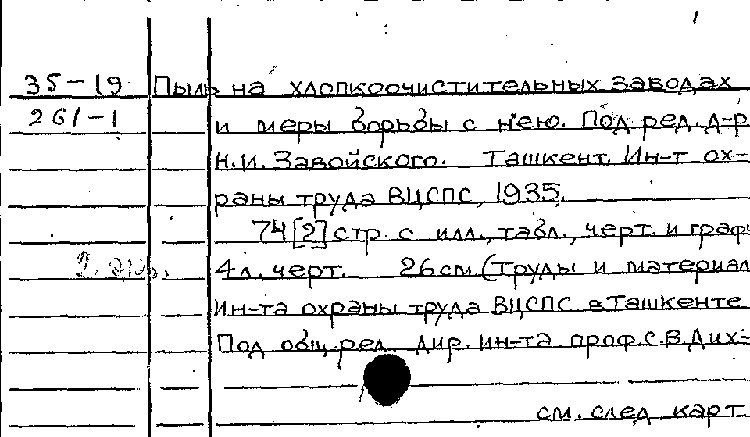 35-19 Пыль на хлопкоочистительных заводах
261-1 и меры борьбы с нею. Под ред. д-р
Н.И. Завойского. Ташкент, Ин-т ох-
раны труда ВЦСПС, 1935.
74 [2] стр. с илл., табл., черт. и граф.
2 экз. 4 л. черт. 26 см. (Труды и материал
Ин-та охраны труда ВЦСПС в Ташкенте
Под общ. ред. дир. ин-та проф. С.В. Дих-
см. след карт